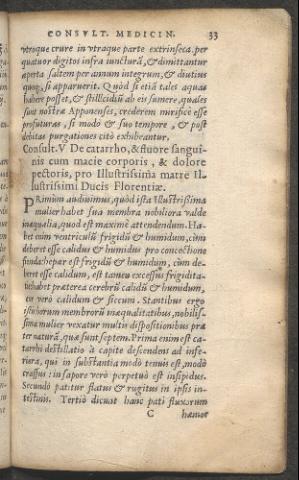 CONSVLT. MEDICIN. 33
vtroque crure in vtraque parte extrinseca. per
quatuor digitos infra iuncturã, & dimittantur
aperta saltem per annum integrum, & diutius
quoq; si apparuerit. Quòd si etiã tales aquas
habere posset, & stillicidiũ ab eis sumere, quales
sunt nostræ Apponenses, crederem mirificè esse
profuturas, si modo & suo tempore, & post
debitas purgationes citò exhibeantur.
Consult. V. De catarrho, & fluore sangui-
nis cum macie corporis, & dolore
pectoris, pro Illustrissima matre Il-
lustrissimi Ducis Florentiæ.
PRimùm audiuimus, quòd ista Illustrissima
mulier habet sua membra nobiliora valde
inæqualia, quod est maximè attendendum. Ha-
bet enim ventriculũ frigidũ & humidum, cùm
deberet esse calidus & humidus pro concoctione
hepar est frigidũ & humidum, cùm de-
beret esse calidum, est tamen excessus frigidita-
habet præterea cerebrũ calidũ & humidum,
cor verò calidum & siccum. Stantibus ergo
istorum membrorũ inæqualitatibus, nobilis-
sima mulier vexatur multis dispositionibus præ
ter naturã, quæ sunt septem. Prima enim est ca-
tarrhi destillatio à capite descendens ad infe-
riora, qui in substantia modò tenuis est, modò
crassus: in sapore verò perpetuò est insipidus.
Secundò patitur flatus & rugitus in ipsis in-
testinis. Tertiò dicunt hanc pati fluxorum
C hæmor